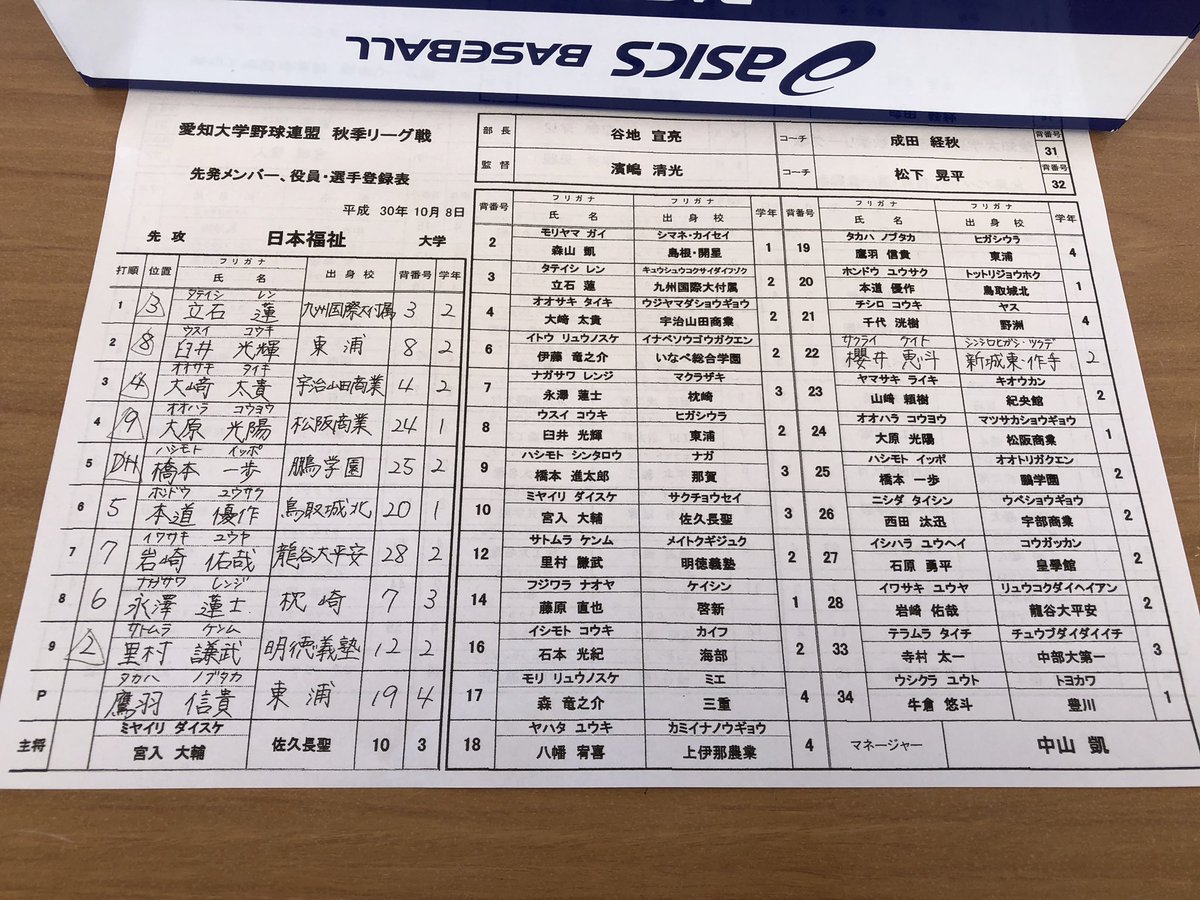 asics BASEBALL
愛知大学野球連盟 秋季リーグ戦
先発メンバー、役員・選手登録表
平成 30年 10月 8日
先 攻 日本福祉 大学
部 長 谷地 宣亮 コーチ 成田 経秋 背番号 31
監 督 濱嶋 清光 コーチ 松下 晃平 背番号 32
打順 位置 フリガナ 氏 名 出 身 校 背番号 学年
1 3 タテイシ レン 立石 蓮 九州国際大付属 3 2
2 8 ウスイ コウキ 臼井 光輝 東浦 8 2
3 4 オオサキ タイキ 大﨑 太貴 宇治山田商業 4 2
4 9 オオハラ コウヨウ 大原 光陽 松阪商業 24 1
5 DH ハシモト イッポ 橋本 一歩 鵬学園 25 2
6 5 ホンドウ ユウサク 本道 優作 鳥取城北 20 1
7 7 イワサキ ユウヤ 岩崎 佑哉 龍谷大平安 28 2
8 6 ナガサワ レンジ 永澤 蓮士 枕崎 7 3
9 2 サトムラ ケンム 里村 謙武 明徳義塾 12 2
P タカハ ノブタカ 鷹羽 信貴 東浦 19 4
主将 ミヤイリ ダイスケ 宮入 大輔 佐久長聖 10 3
背番号 フリガナ 氏 名 フリガナ 出 身 校 学年
2 モリヤマ ガイ 森山 凱 シマネ・カイセイ 島根・開星 1
3 タテイシ レン 立石 蓮 キュウシュウコクサイダイフゾク 九州国際大付属 2
4 オオサキ タイキ 大﨑 太貴 ウジヤマダショウギョウ 宇治山田商業 2
6 イトウ リュウノスケ 伊藤 竜之介 イナベソウゴウガクエン いなべ総合学園 2
7 ナガサワ レンジ 永澤 蓮士 マクラザキ 枕崎 3
8 ウスイ コウキ 臼井 光輝 ヒガシウラ 東浦 2
9 ハシモト シンタロウ 橋本 進太郎 ナガ 那賀 3
10 ミヤイリ ダイスケ 宮入 大輔 サクチョウセイ 佐久長聖 3
12 サトムラ ケンム 里村 謙武 メイトクギジュク 明徳義塾 2
14 フジワラ ナオヤ 藤原 直也 ケイシン 啓新 1
16 イシモト コウキ 石本 光紀 カイフ 海部 2
17 モリ リュウノスケ 森 竜之介 ミエ 三重 4
18 ヤハタ ユウキ 八幡 宥喜 カミイナノウギョウ 上伊那農業 4
背番号 フリガナ 氏 名 フリガナ 出 身 校 学年
19 タカハ ノブタカ 鷹羽 信貴 ヒガシウラ 東浦 4
20 ホンドウ ユウサク 本道 優作 トットリジョウホク 鳥取城北 1
21 チシロ コウキ 千代 洸樹 ヤス 野洲 4
22 サクライ ケイト 櫻井 恵斗 シンシロヒガシ・ツクデ 新城東・作手 2
23 ヤマサキ ライキ 山﨑 頼樹 キオウカン 紀央館 2
24 オオハラ コウヨウ 大原 光陽 マツサカショウギョウ 松阪商業 1
25 ハシモト イッポ 橋本 一歩 オオトリガクエン 鵬学園 2
26 ニシダ タイシン 西田 汰迅 ウベショウギョウ 宇部商業 2
27 イシハラ ユウヘイ 石原 勇平 コウガッカン 皇學館 2
28 イワサキ ユウヤ 岩崎 佑哉 リュウコクダイヘイアン 龍谷大平安 2
33 テラムラ タイチ 寺村 太一 チュウブダイダイイチ 中部大第一 3
34 ウシクラ ユウト 牛倉 悠斗 トヨカワ 豊川 1
マネージャー 中山 凱